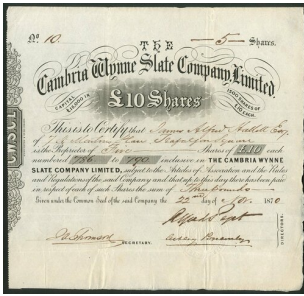 No 10. THE —5— Shares.
Cambria Wynne Slate Company, Limited
CAPITAL £10,000 IN 1000 SHARES OF £10 EACH.
£10 Shares
This is to Certify that James Alfred
of
is the Proprietor of Five Shares of £10 each
numbered 786 to 790 inclusive in THE CAMBRIA WYNNE
SLATE COMPANY, LIMITED, subject to the Articles of Association and the Rules
and Regulations of the said Company and that up to this day there has been paid
in respect of each of such Shares the sum of Three pounds
Given under the Common Seal of the said Company the 22nd day of 1870
SECRETARY.
DIRECTORS.